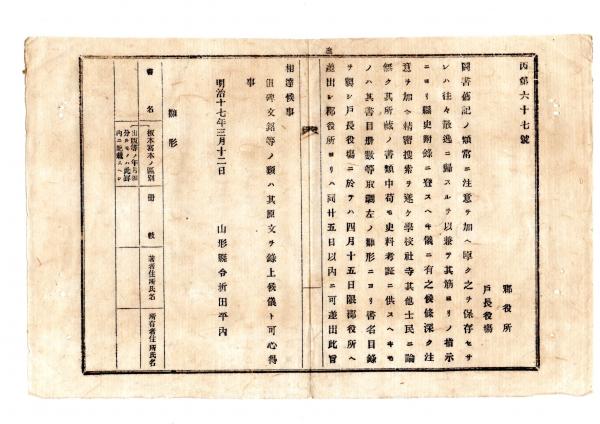 丙第六十七號
郡役所
戸長役場
圖書舊記ノ類常ニ注意ヲ加ヘ厚ク之ヲ保存セサ
レハ往々散逸ニ歸スルヲ以兼テ其筋ヨリノ指示
ニヨリ縣史附錄ニ登スヘキ儀ニ有之候條深ク注
意ヲ加ヘ精密捜索ヲ遂ケ學校社寺其他士民ニ論
無ク其所藏ノ書類中苟モ史料考証ニ供スヘキモ
ノハ其書目册數等取調左ノ雛形ニヨリ書名目錄
ヲ製シ戸長役場ニ於テハ四月十五日限郡役所ヘ
差出シ郡役所ヨリハ同廿五日以内ニ可差出此旨
相達候事
但碑文銘等ノ類ハ其原文ヲ錄上候儀ト可心得
事
明治十七年三月十二日
山形縣令折田平内
雛形
書名
版本寫本ノ區別
出版等ノ年月
分ルモノハ此譯
内ニ記載スヘシ
册數
著者住所氏名
所有者住所氏名